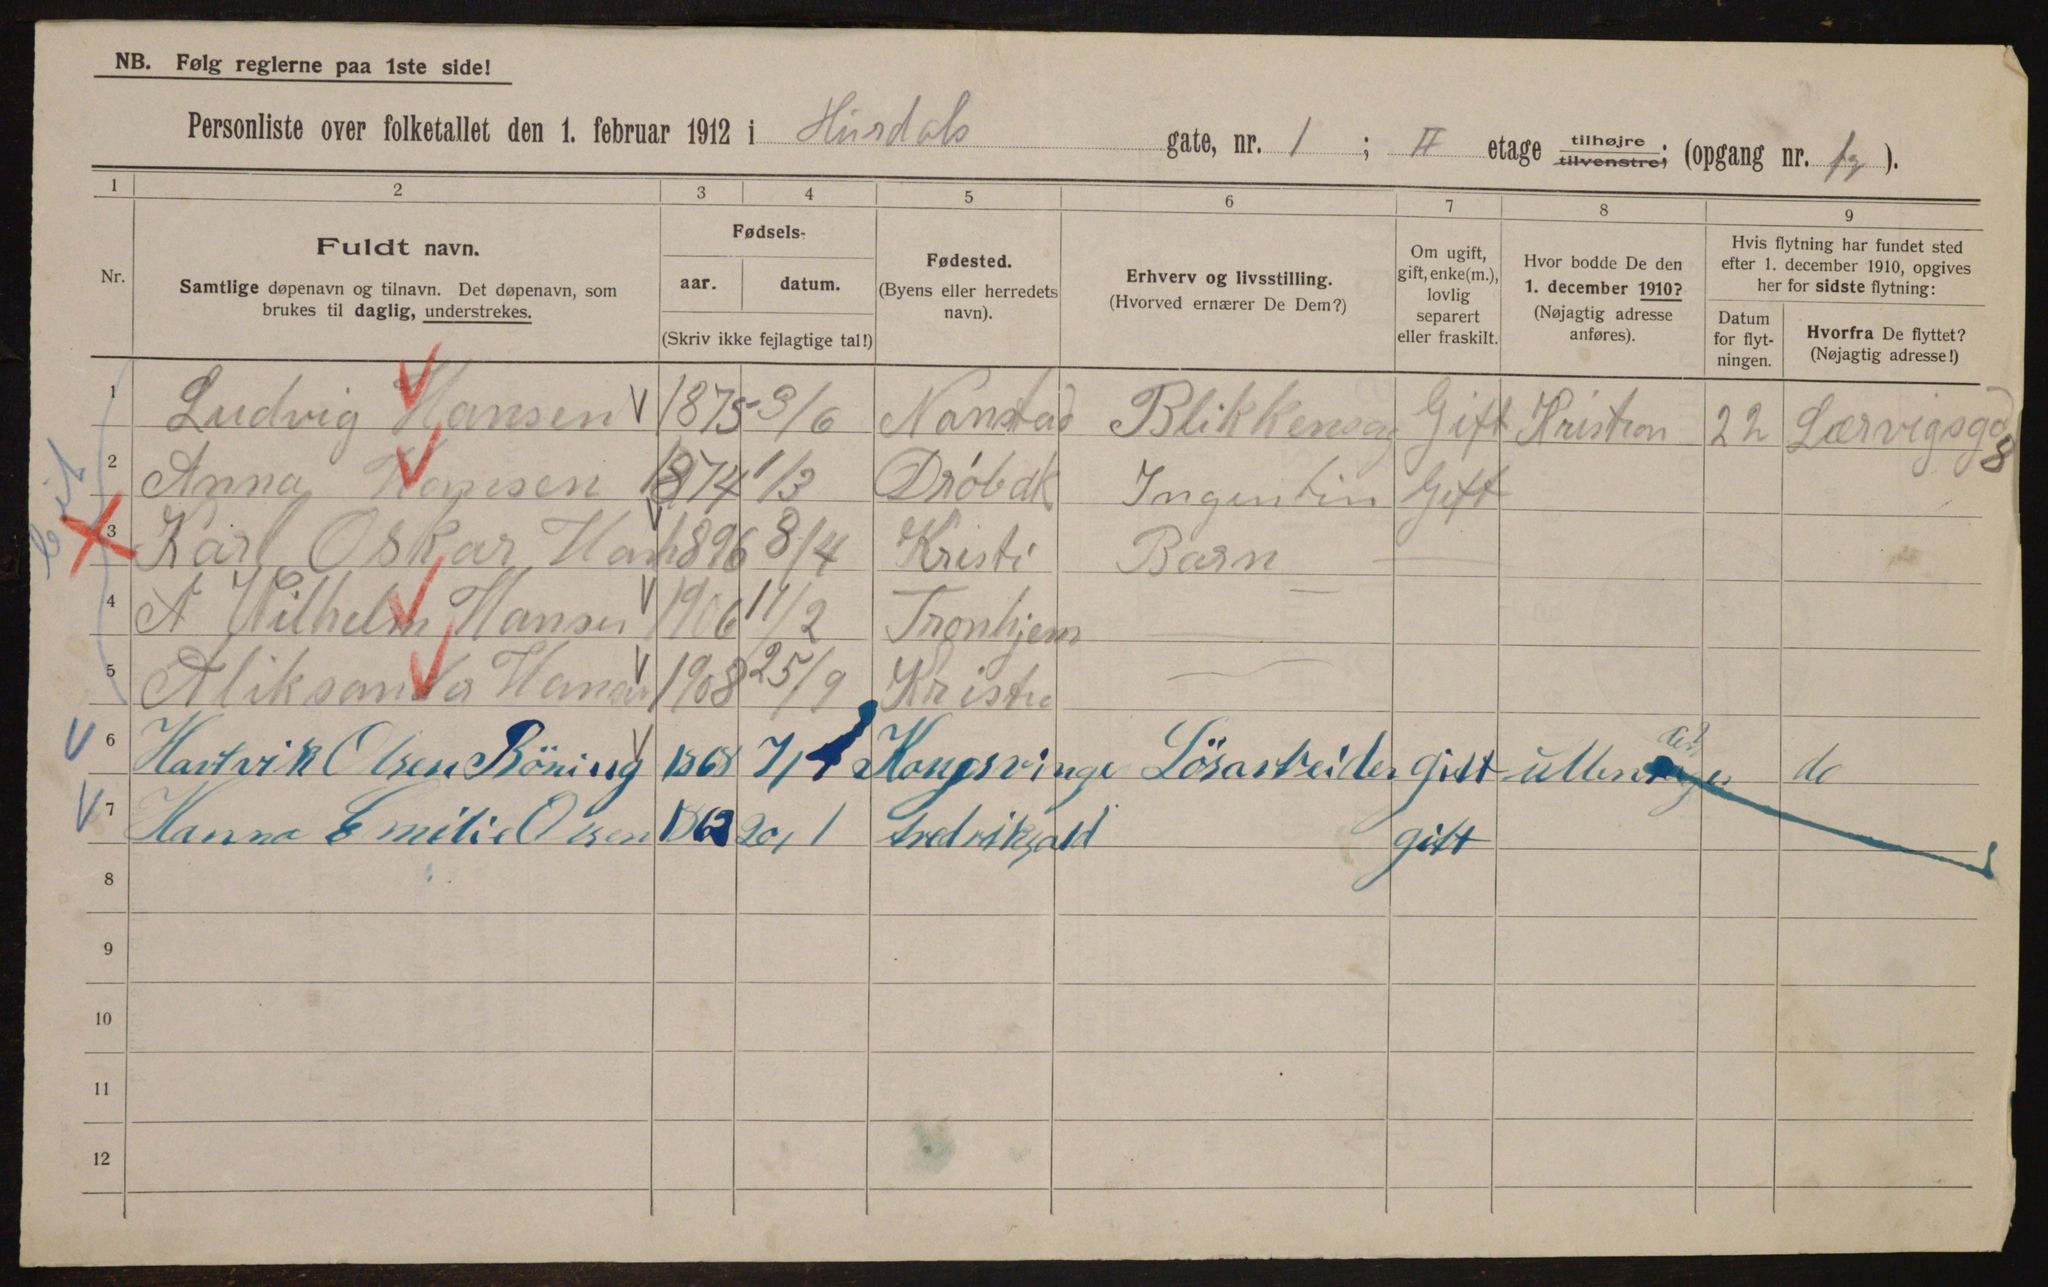 NB. Følg reglerne paa 1ste side!
Personliste over folketallet den 1. februar 1912 i Hurdals gate, nr. 1 ; II etage tilhøjre. tilvenstre; (opgang nr. ).
1 2 3 4 5 6 7 8 9
Nr.
Fuldt navn.
Samtlige døpenavn og tilnavn. Det døpenavn, som
brukes til daglig, understrekes.
Fødsels-
aar. datum.
(Skriv ikke fejlagtige tal!)
Fødested.
(Byens eller herredets
navn).
Erhverv og livsstilling.
(Hvorved ernærer De Dem?)
Om ugift,
gift, enke(m.),
lovlig
separert
eller fraskilt.
Hvor bodde De den
1. december 1910?
(Nøjagtig adresse
anføres).
Hvis flytning har fundet sted
efter 1. december 1910, opgives
her for sidste flytning:
Datum
for flyt-
ningen.
Hvorfra De flyttet?
(Nøjagtig adresse!)
1 Ludvig Hansen 1875 3/6 Nanstad Gift 22
2 Anna Hansen 1874 1/3 Drøbak Ingentin Gift
3 Karl Oskar Han 1896 8/4 Kristi Barn —
4 A Wilhelm Hansen 1906 11/2 Tronhjem — —
5 Aliksanda Hansen 1908 25/9 Kristia —
6 Hartvik Olsen Böning 1868 Kongsvinge Lösarbeider gift do
7 Hanna Emilie Olsen 20/1 fredrikhald gift
8
9
10
11
12